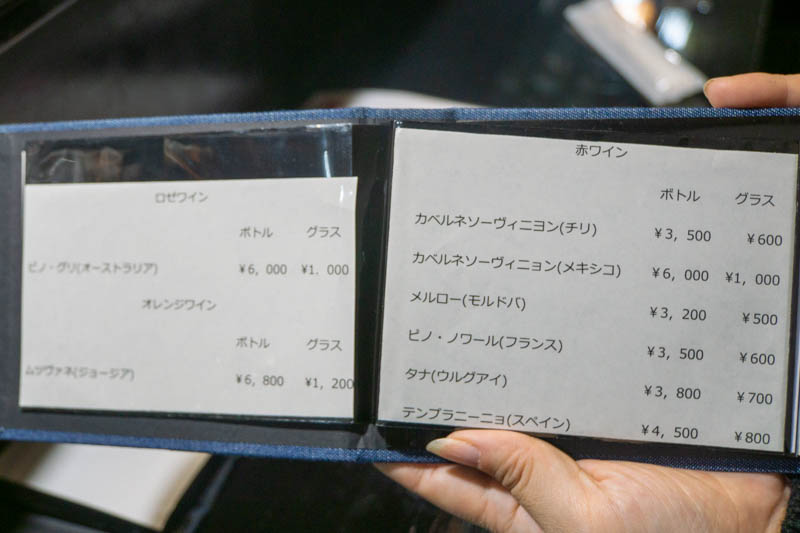 ロゼワイン
ボトル グラス
ピノ・グリ(オーストラリア) ¥6, 000 ¥1. 000
オレンジワイン
ボトル グラス
ムツヴァネ(ジョージア) ¥6, 800 ¥1, 200
赤ワイン
ボトル グラス
カベルネソーヴィニヨン(チリ) ¥3, 500 ¥600
カベルネソーヴィニョン(メキシコ) ¥6, 000 ¥1, 000
メルロー(モルドバ) ¥3, 200 ¥500
ピノ・ノワール(フランス) ¥3, 500 ¥600
タナ(ウルグアイ) ¥3, 800 ¥700
テンプラニーニョ(スペイン) ¥4, 500 ¥800